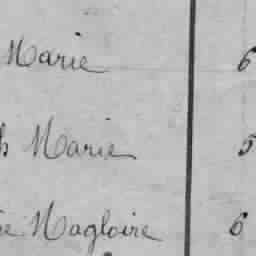 Marie 6
h Marie 5
ie Magloire 6